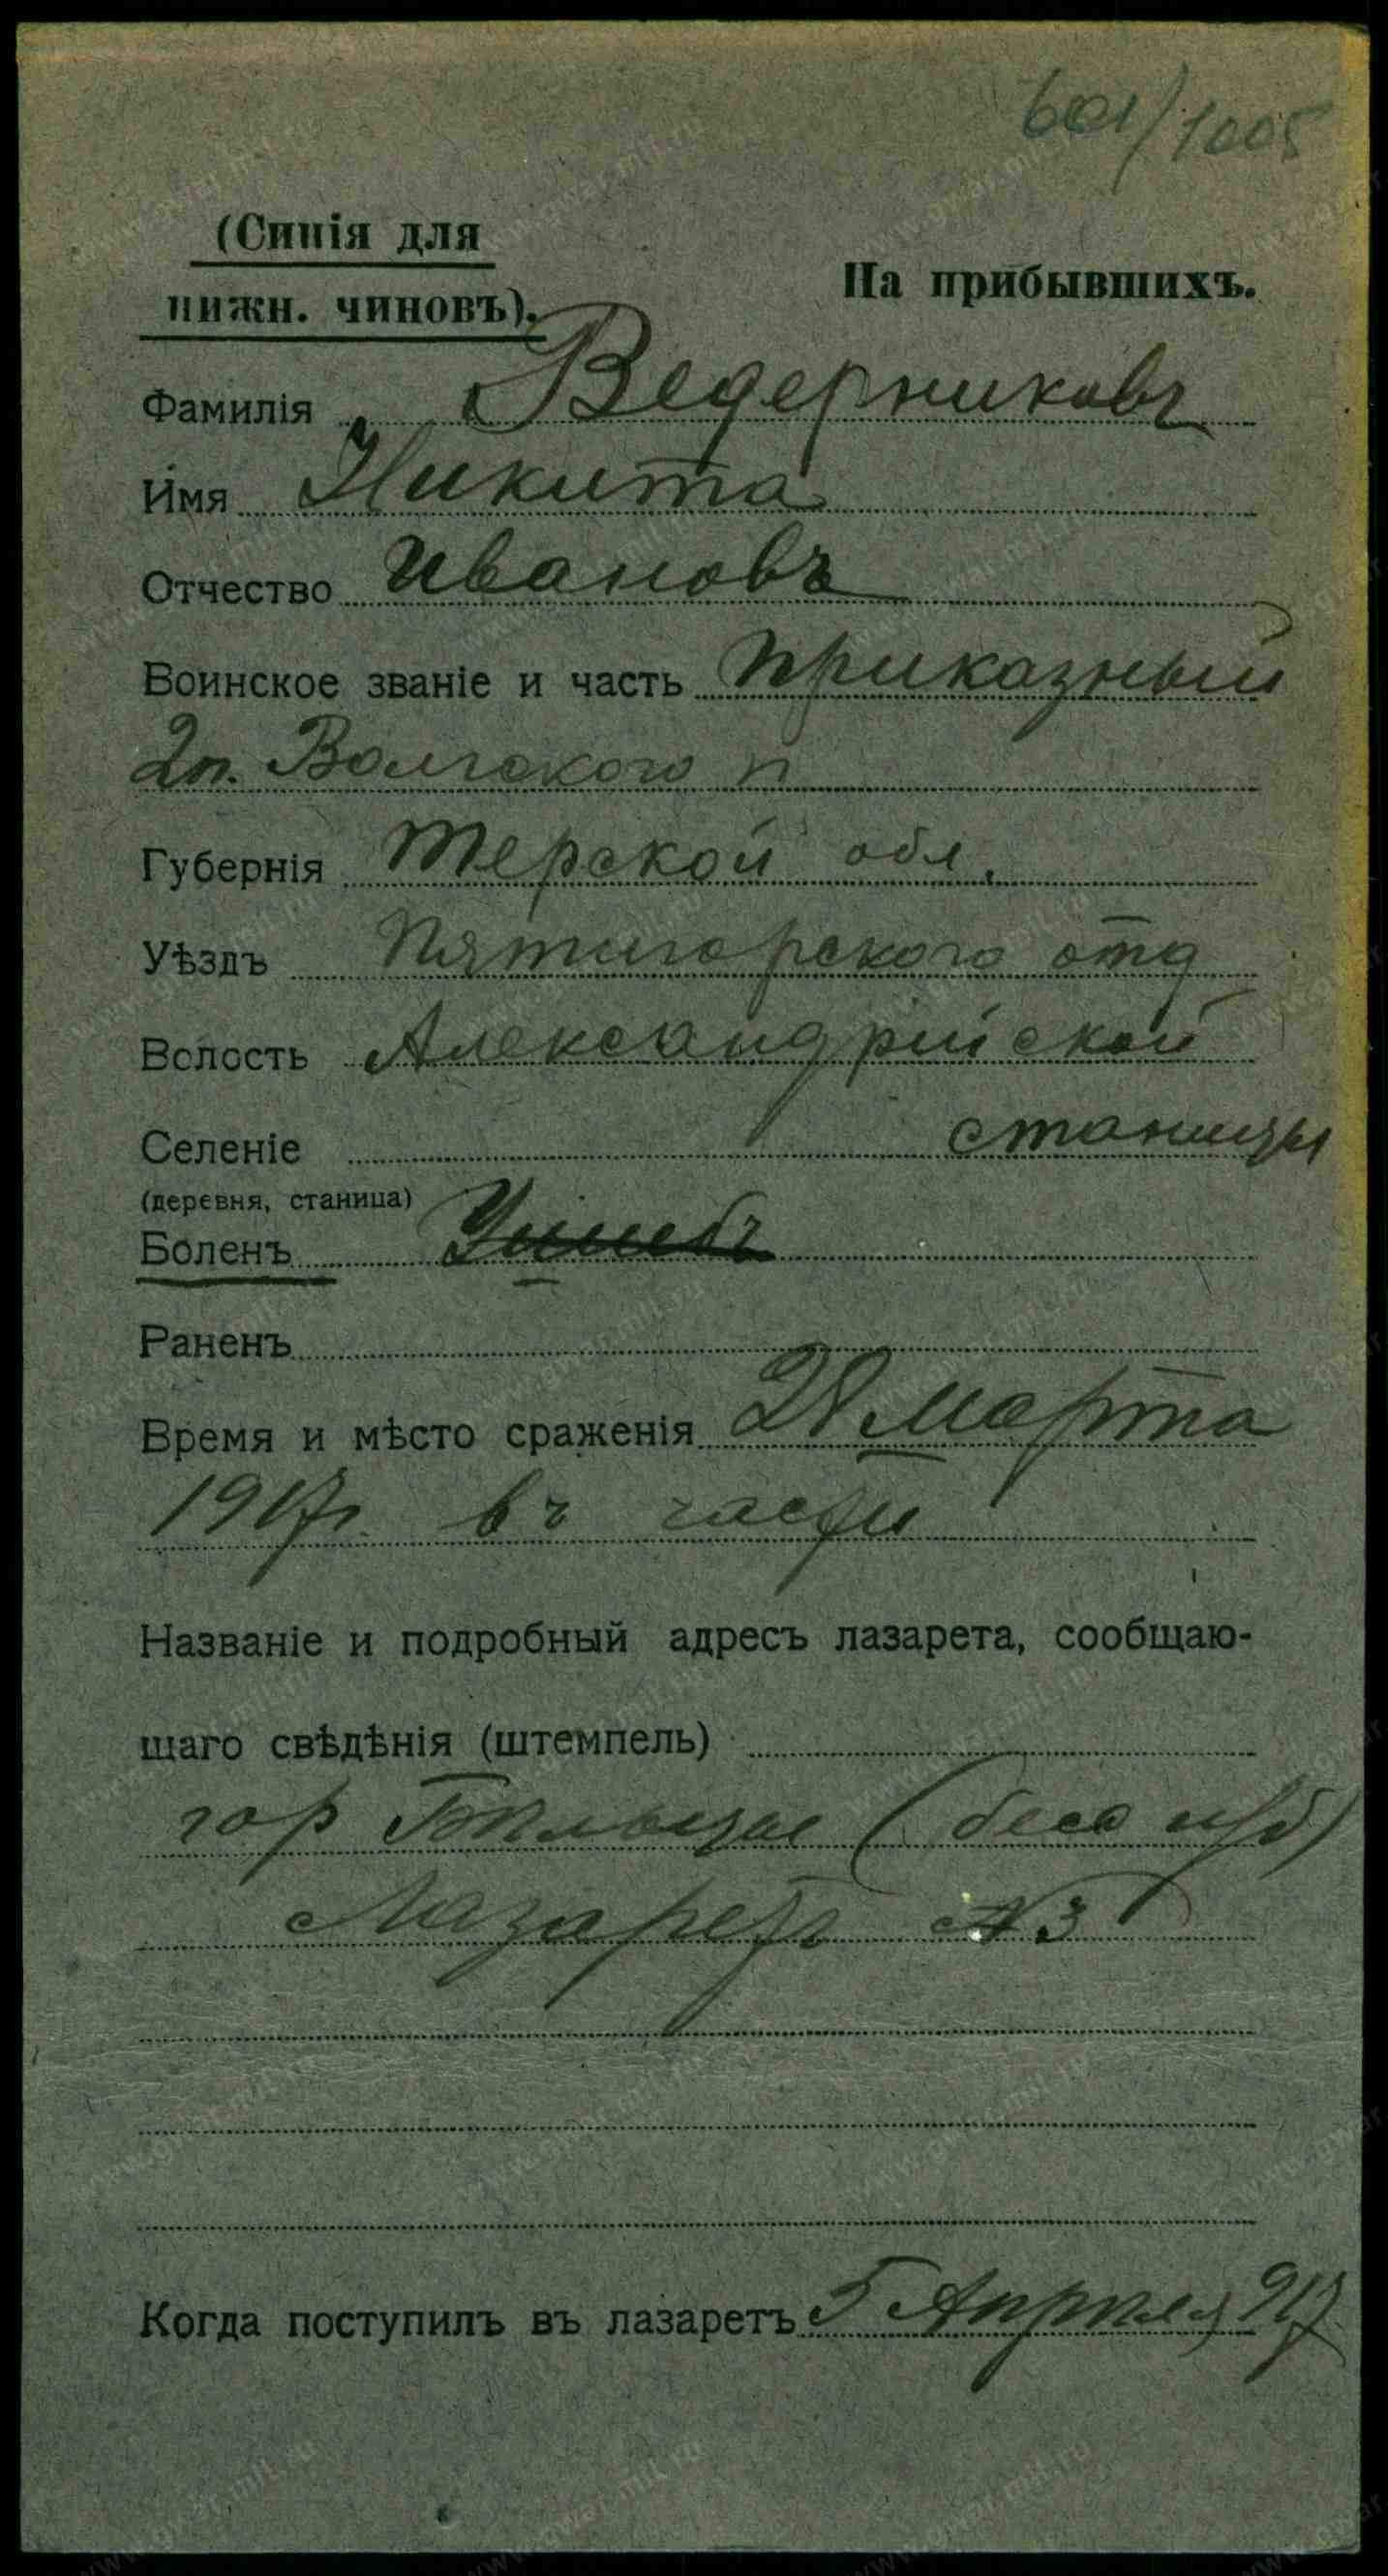 601/1005
(Синія для
нижн. чиновъ).
На прибывшихъ.
Фамилія Ведерниковъ
Имя Никита
Отчество Ивановъ
Воинское званіе и часть приказный
2п. Волгского п
Губернія Терской обл.
Уѣздъ Пятигорского отд
Волость Александрійской
Селеніе станицы
(деревня, станица)
Боленъ Ушибъ
Раненъ
Время и мѣсто сраженія 28 Марта
1917г. въ части
Названіе и подробный адресъ лазарета, сообщаю-
щаго свѣдѣнія (штемпель)
гор Бѣльцы (бесс губ)
Лазаретъ № 3
Когда поступилъ въ лазаретъ 5 Апрѣля 917